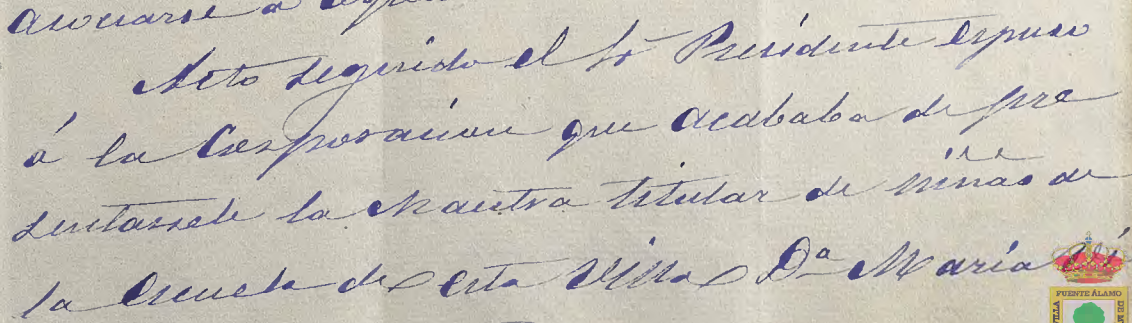 asociarse a
Acto seguido el Sr Presidente espuso
á la Corporacion que acababa de pre
sentarsele la Maestra titular de niñas de
la Escuela de esta Villa Dª María
FUENTE ÁLAMO
VILLA
DE M